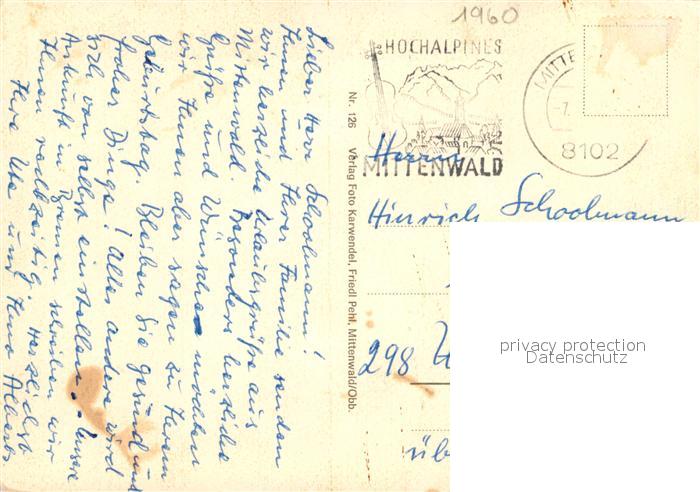 1960
HOCHALPINES
MITTENWALD
MITTE
-7.
8102
Herrn
Hinrich Schoolmann
298
üb
privacy protection
Datenschutz
Nr. 126 Verlag Foto Karwendel, Friedl Pehl, Mittenwald/Obb.
Lieber Herr Schoolmann!
Ihnen und Ihrer Familie senden
wir herzliche Urlaubsgrüße aus
Mittenwald. Besonders herzliche
Grüße und Wünsche möchten
wir Ihnen aber sagen zu Ihrem
Geburtstag. Bleiben Sie gesund und
froher Dinge! Alles andere wird
sich von selbst einstellen. Unsere
Ankunft in Bremen schreiben wir
Ihnen rechtzeitig. Herzlichst
Ihre Ute und Alberts